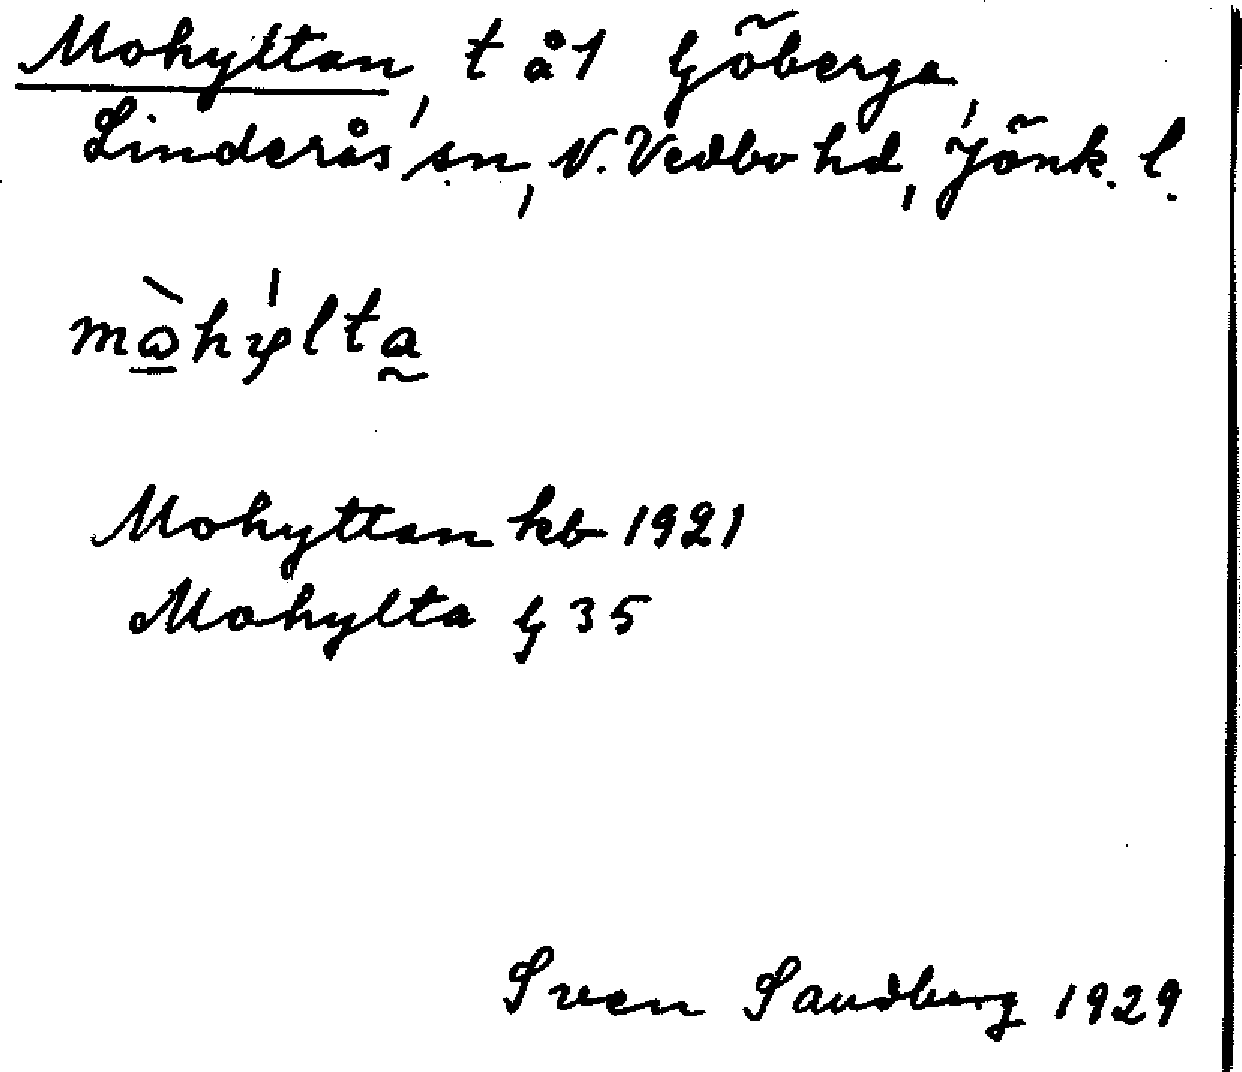 Mohyltan, t å 1 Göberga,
Linderås sn, N. Vedbo hd, Jönk. l.
Mohyttan kb 1921
Mohylta G 35
Sven Sandberg 1929